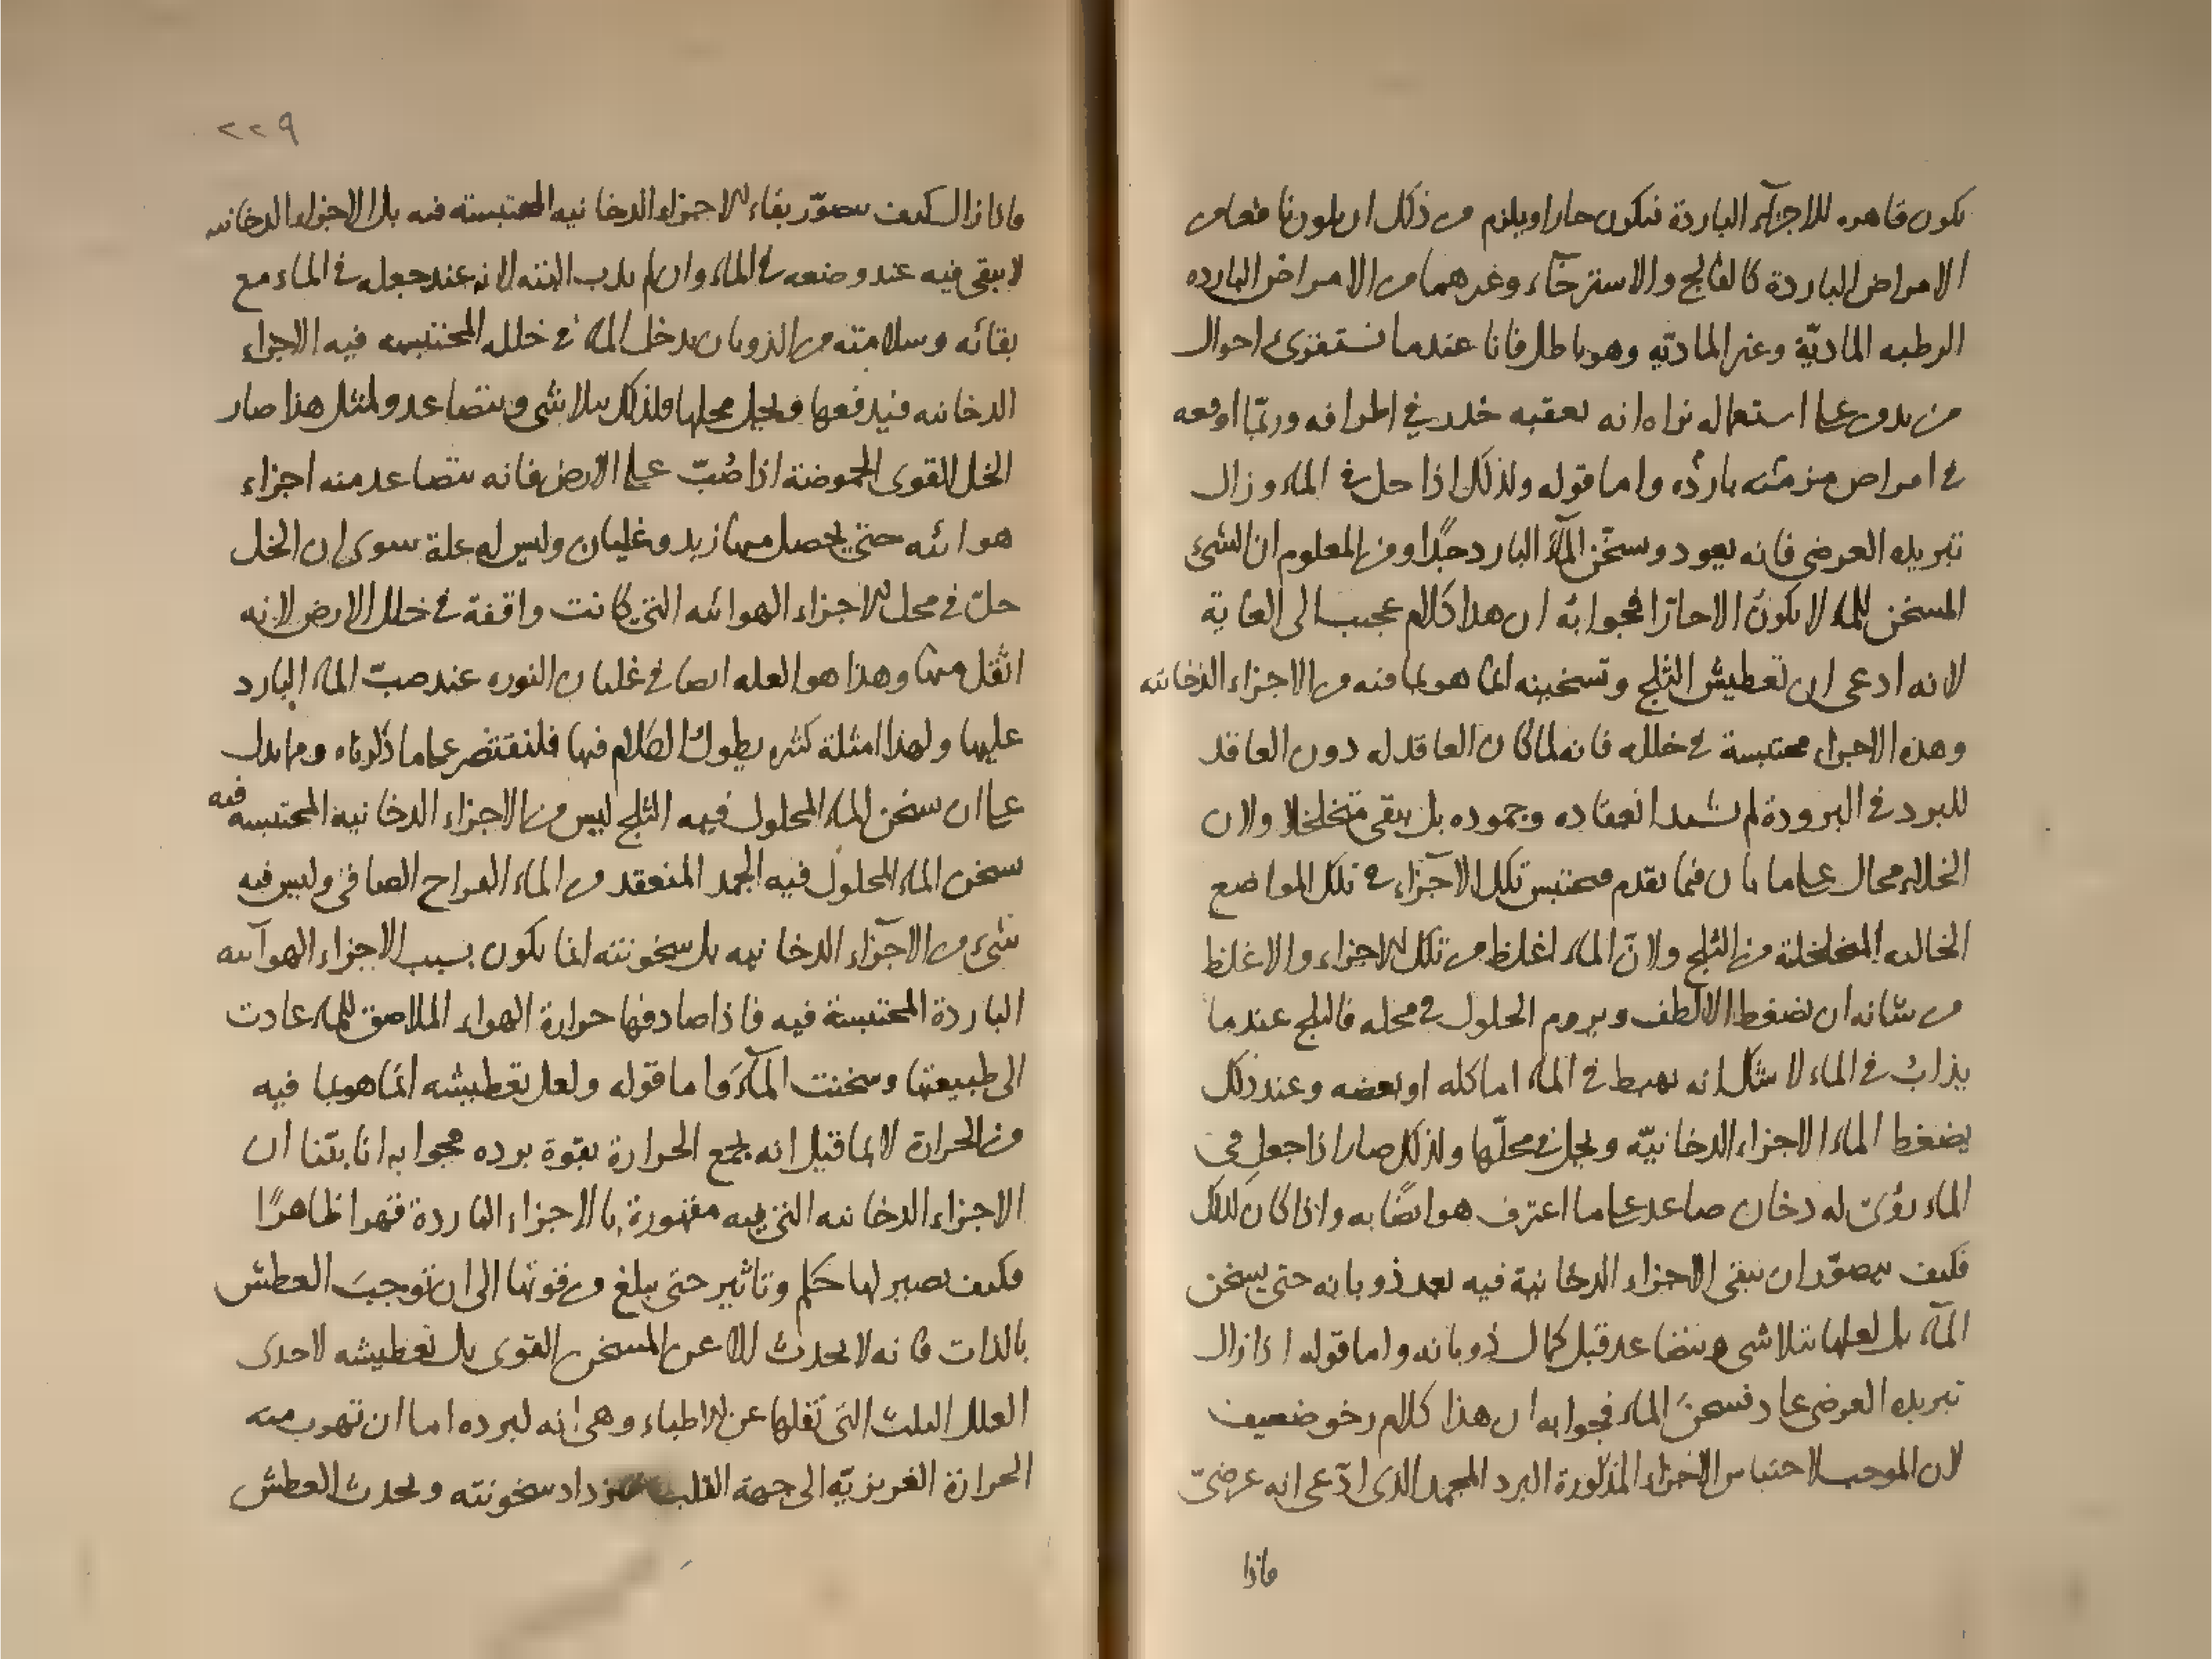 تكون قاهره للاجزآء الباردة فيكون حارا ويلزم من ذلك ان يكون نافعا من
الامراض الباردة كالفالج والاسترخآء وغيرهما من الامراض البارده
الرطبه الماديّة وغير الماديّه وهو باطل فانا عندما نستقرى احوال
من يدمن على استعماله نراه انه يعقبه خدر في اطرافه وربّما اوقعه
في امراض مزمنه بارده واما قوله ولذلك اذا حل في الماء وزال
تبريده العرضى فانه يعود وسخّن المآء البارد جدًا ومن المعلوم ان الشئ
المسخن للماء لا يكون الا حارّا فجوابه ان هذا كلام عجيب الى الغاية
لانه ادعى ان تعطيش الثلج وتسخينه انما هو بما فيه من الاجزاء الدخانيه
وهذه الاجزاء محتبسة في خلله فانه لما كان العاقد له دون العاقد
للبرد في البرودة لم يشتد انعقاده وجموده بل يبقى متخلخلا ولان
الخلاء محال على ما بان فيما تقدم فتحتبس تلك الاجزاء في تلك المواضع
الخاليه المتخلخلة من الثلج ولانّ الماء اغلظ من تلك الاجزاء والاغلظ
من شانه ان يضغط الالطف ويروم الحلول في محله فالثلج عندما
يذاب في الماء لا شك انه يهبط في الماء اما كله او بعضه وعند ذلك
يضغط الماء الاجزاء الدخانيّه ويحل في محلّها ولذلك صار اذا جعل في
الماء رؤى له دخان صاعد على ما اعترف هو ايضًا به واذا كان كذلك
فكيف يتصوّر ان تبقى الاجزاء الدخانية فيه بعد ذوبانه حتى يسخن
المآء بل لعلها تتلاشى وتتصاعد قبل كمال ذوبانه واما قوله اذا زال
تبريده العرضى عاد فسخنَ الماء فجوابه ان هذا كلام رخو ضعيف
لان الموجب لاحتباس الاجزاء المذكورة البرد المجمد الذى ادّعى انه عرضىّ
فاذا
٢٢٩
فاذا زال كيف يتصوّر بقاء الاجزاء الدخانيه المحتبسته فيه بل الاجزاء الدخانيه
لا يبقى فيه عند وضعه في الماء وان لم يذب البته لانه عند جعله في الماء مع
بقائه وسلامته من الذوبان يدخل الماء في خلله المحتبسه فيه الاجزاء
الدخانيه فيدفعها ويحل محلها فلذلك يتلاشى ويتصاعد ولمثل هذا صار
الخل القوى الحموضة اذا صُبّ على الارض فانه يتصاعد منه اجزاء
هوائيه حتى يحصل منها زبد وغليان وليس له علة سوى ان الخل
حلّ في محل الاجزاء الهوائيه التى كانت واقفة في خلل الارض لانه
اثقل منها وهذا هو العله ايضا في غليان النوره عند صبّ الماء البارد
عليها ولهذا امثلة كثيره يطول الكلام فيها فلنقتصر على ما ذكرناه ومما يدل
على ان سخن الماء المحلول فيه الثلج ليس من الاجزاء الدخانية المحتبسه فيه
سخن الماء المحلول فيه الجمد المنعقد من الماء القراح الصافى وليس فيه
شئ من الاجزآء الدخانيه بل سخونته انما تكون بسبب الاجزاء الهوآئيه
الباردة المحتبسة فيه فاذا صادفها حرارة الهواء الملاصق للماء عادت
الى طبيعتها وسخنت المآء واما قوله ولعل تعطيشه انما هو بما فيه
من الحرارة لا لما قيل انه يجمع الحرارة بقوة برده فجوابه انا بيّنا ان
الاجزاء الدخانيه التى فيه مقهورة بالاجزاء الباردة قهرا ظاهرًا
فكيف يصير لها حكم وتاثير حتى يبلغ من قوتها الى ان توجبَ العطش
بالذات فانه لا يحدث الا عن المسخن القوى بل تعطيشه لاحدى
العلل الثلث التى نقلها عن الاطباء وهى انه لبرده اما ان تهرب منه
الحرارة الغريزيّه الى جهة القلب فتزداد سخونته ويحدث العطش